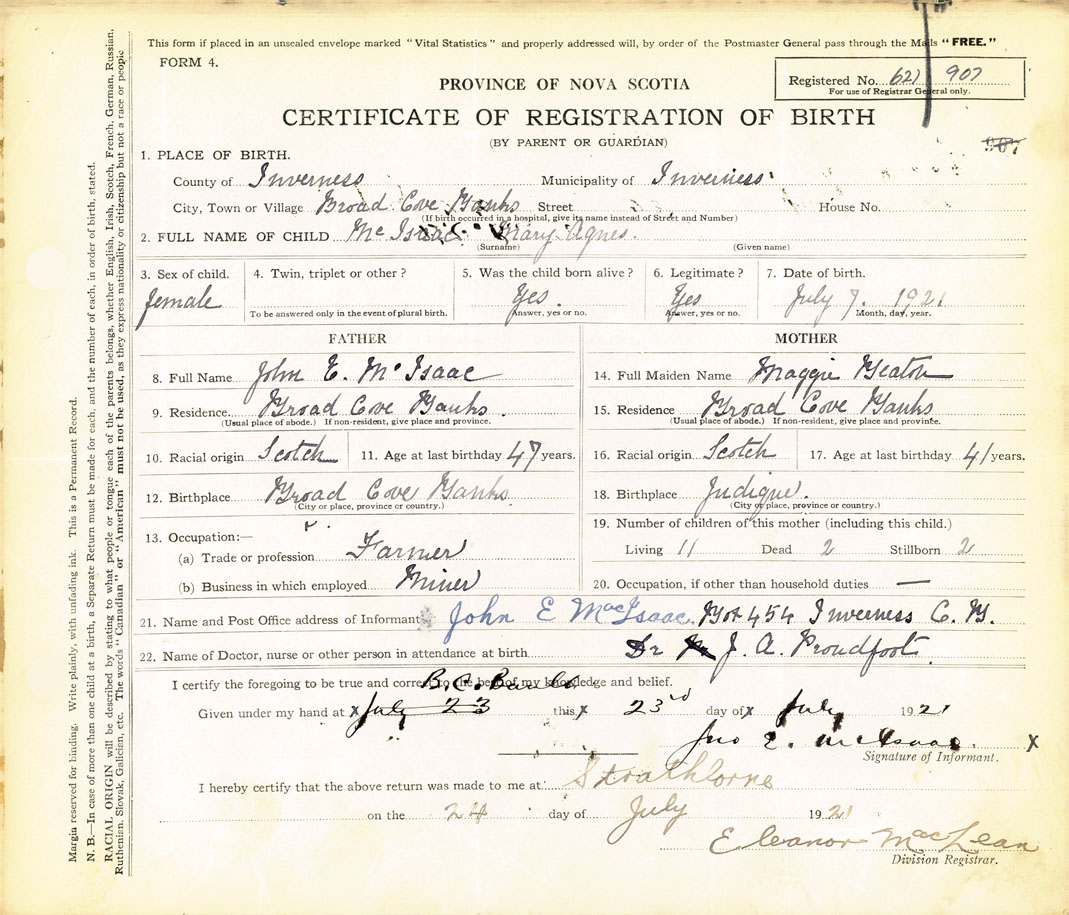 This form if placed in an unsealed envelope marked "Vital Statistics" and properly addressed will, by order of the Postmaster General pass through the Mails "FREE."
FORM 4.
Registered No. 621 907
For use of Registrar General only.
PROVINCE OF NOVA SCOTIA
CERTIFICATE OF REGISTRATION OF BIRTH
(BY PARENT OR GUARDIAN)
907
1. PLACE OF BIRTH.
County of Inverness Municipality of Inverness
City, Town or Village Broad Cove Banks Street House No.
(If birth occurred in a hospital, give its name instead of Street and Number)
2. FULL NAME OF CHILD Mc Isaac Mary Agnes.
(Surname) (Given name)
3. Sex of child. 4. Twin, triplet or other? 5. Was the child born alive? 6. Legitimate? 7. Date of birth.
female Yes. Yes July 7. 1921
To be answered only in the event of plural birth. Answer, yes or no. Answer, yes or no. Month, day, year.
FATHER MOTHER
8. Full Name John E. Mc Isaac 14. Full Maiden Name Maggie Beaton
9. Residence Broad Cove Banks. 15. Residence Broad Cove Banks
(Usual place of abode.) If non-resident, give place and province. (Usual place of abode.) If non-resident, give place and province.
10. Racial origin Scotch 11. Age at last birthday 47 years. 16. Racial origin Scotch 17. Age at last birthday 41 years.
12. Birthplace Broad Cove Banks. 18. Birthplace Judique.
(City or place, province or country.) (City or place, province or country.)
13. Occupation:— 19. Number of children of this mother (including this child.)
(a) Trade or profession Farmer Living 11 Dead 2 Stillborn 2
(b) Business in which employed Miner 20. Occupation, if other than household duties —
21. Name and Post Office address of Informant John E MacIsaac. Box 454 Inverness C. B.
22. Name of Doctor, nurse or other person in attendance at birth Dr J. A. Proudfoot.
I certify the foregoing to be true and correct to the best of my knowledge and belief.
B. C. Banks
Given under my hand at x July 23 this x 23rd day of x July 1921
Jno E. McIsaac. x
Signature of Informant.
I hereby certify that the above return was made to me at Strathlorne
on the 24 day of July 1921
Eleanor MacLean
Division Registrar.
Margin reserved for binding. Write plainly, with unfading ink. This is a Permanent Record.
N. B.—In case of more than one child at a birth, a Separate Return must be made for each, and the number of each, in order of birth, stated.
RACIAL ORIGIN will be described by stating to what people or tongue each of the parents belongs, whether English, Irish, Scotch, French, German, Russian,
Ruthenian, Slovak, Galician, etc. The words "Canadian" or "American" must not be used, as they express nationality or citizenship but not a race or people